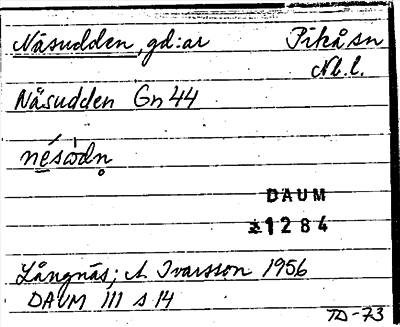 Näsudden, gd:ar Piteå sn
Nb.l.
Nåsudden Gn 44
nésòdn̥
DAUM
1284
Långnäs; A Ivarsson 1956
DAUM 111 s 14
TD-73